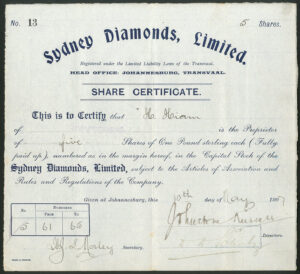 No. 13
5 Shares.
Sydney Diamonds, Limited.
Registered under the Limited Liability Laws of the Transvaal.
HEAD OFFICE: JOHANNESBURG, TRANSVAAL.
SHARE CERTIFICATE.
This is to Certify that H. Hiram
of is the Proprietor
of five Shares of One Pound sterling each (Fully
paid up) numbered as in the margin hereof, in the Capital Stock of the
Sydney Diamonds, Limited, subject to the Articles of Association and
Rules and Regulations of the Company.
Given at Johannesburg, this 10th day of May 190
NUMBERED
FROM TO
5 61 65
Directors.
Secretary.